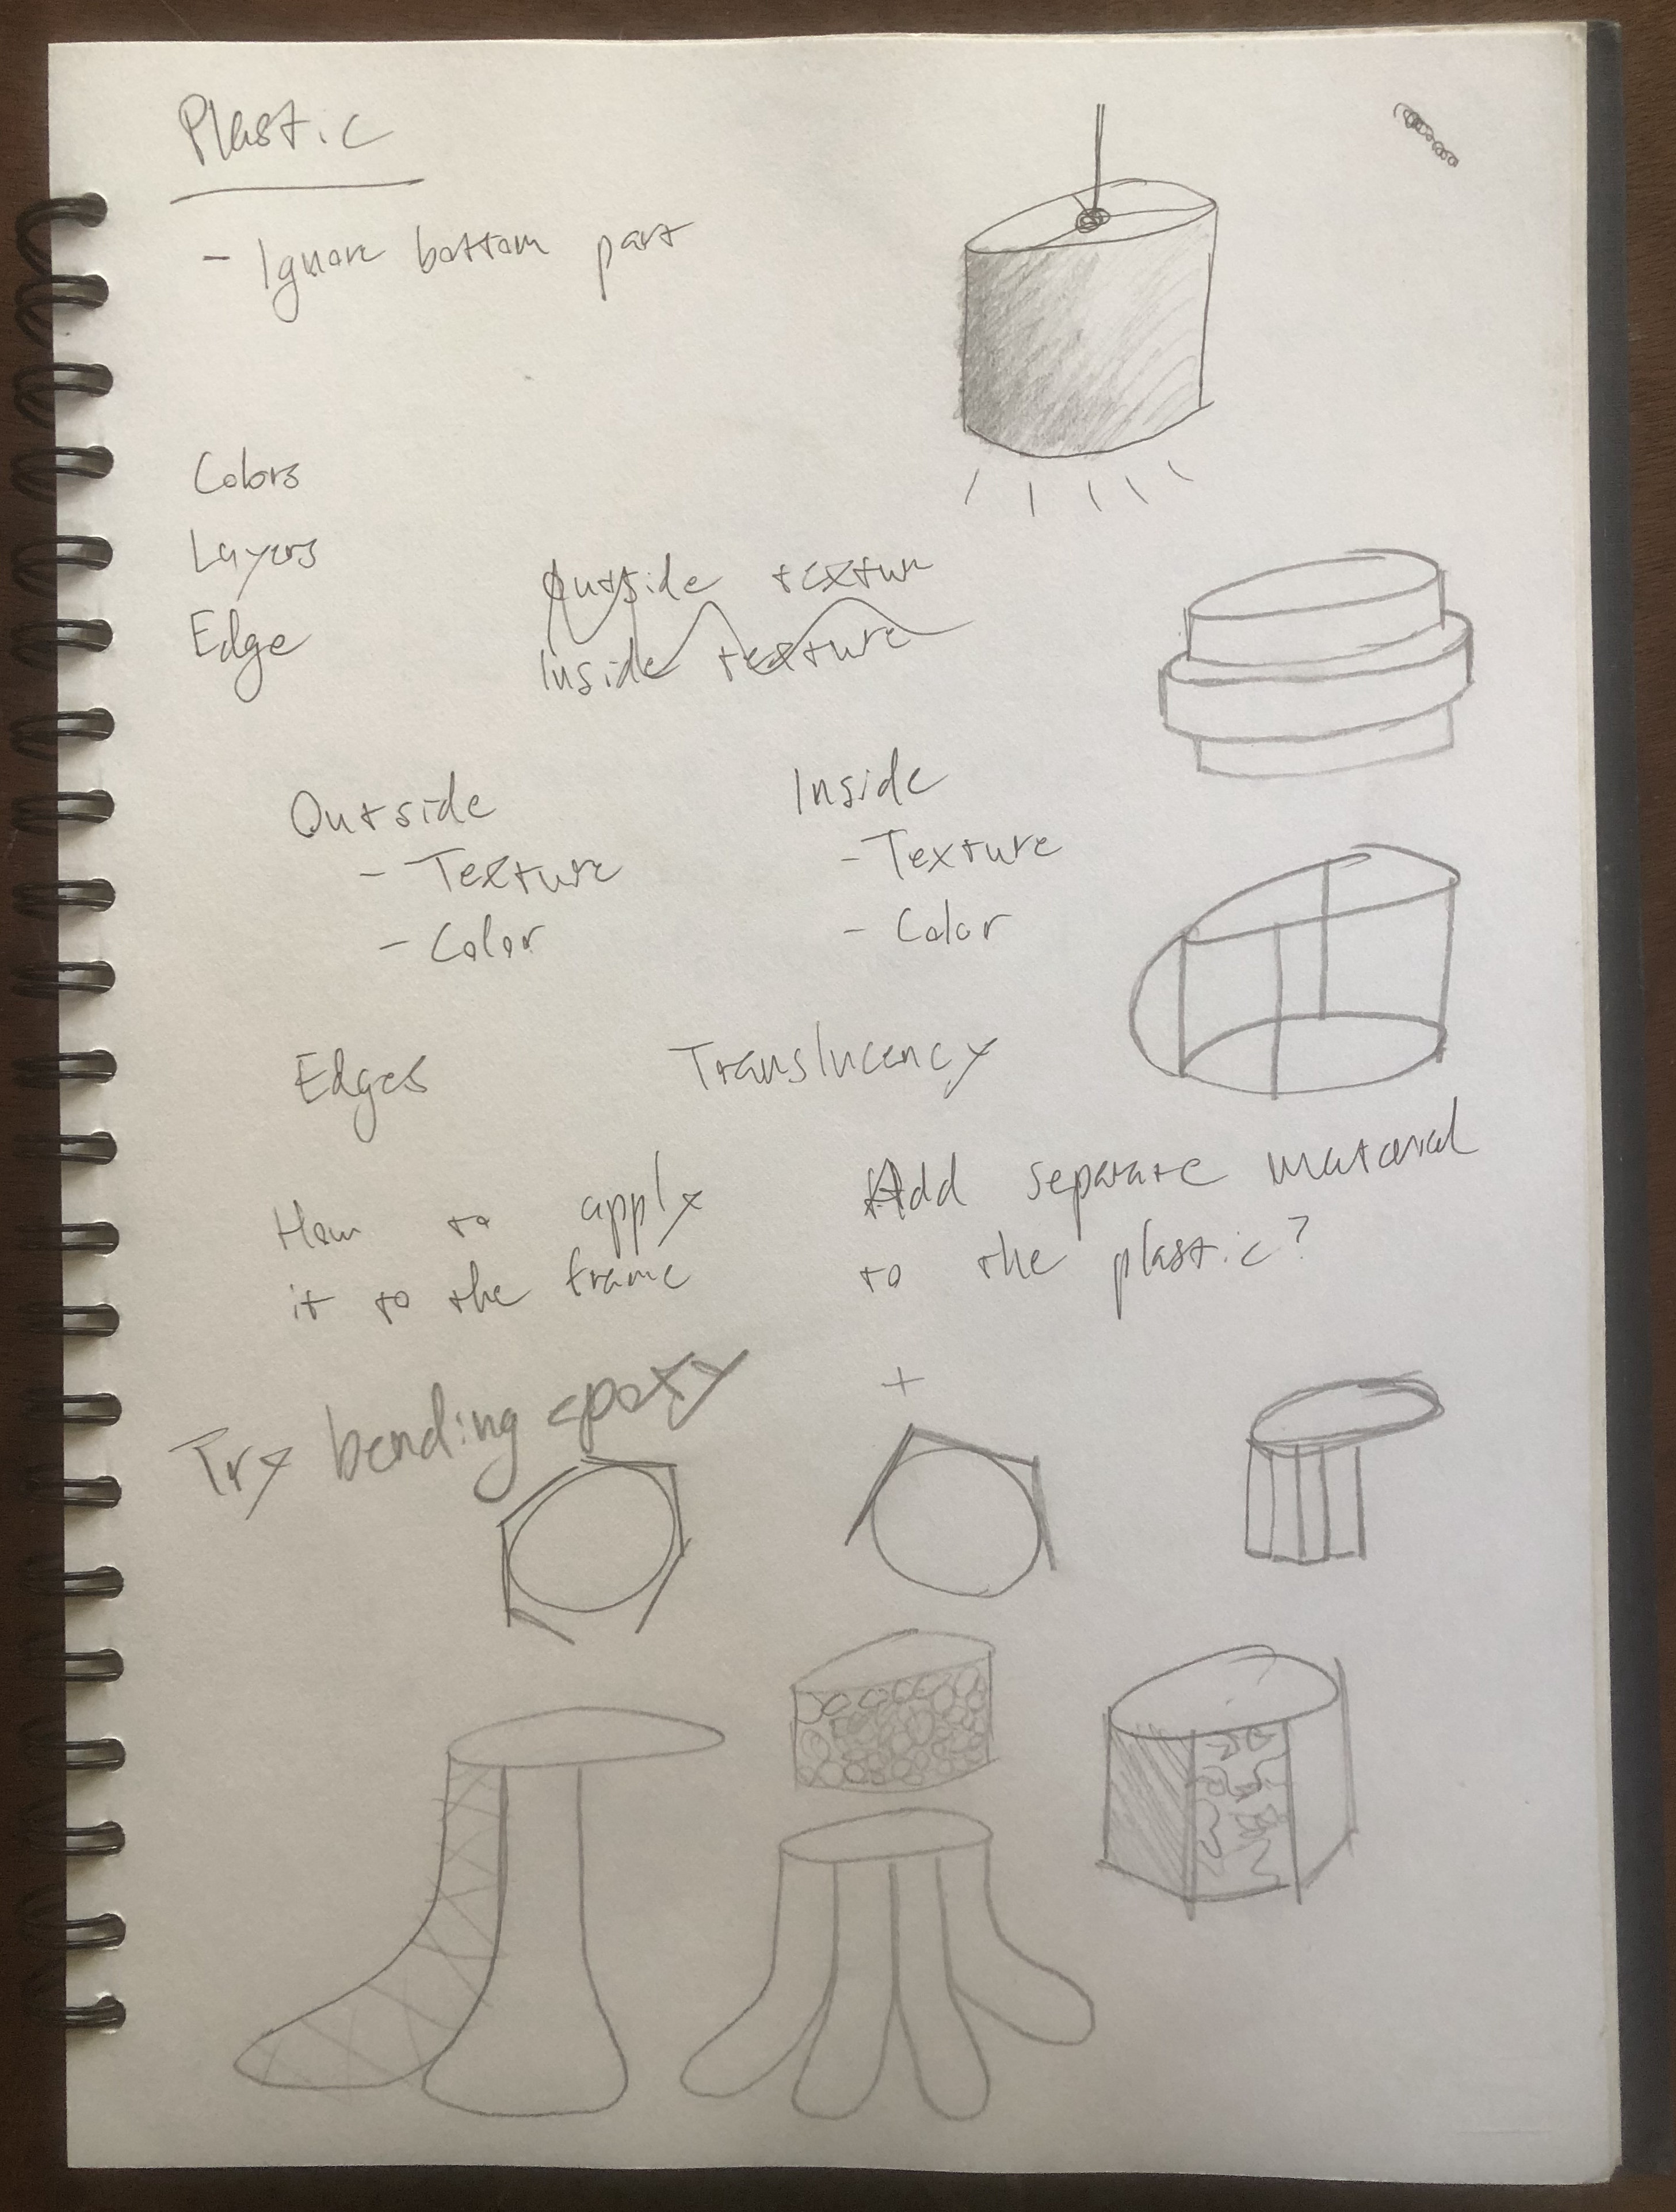 Plastic
- Ignore bottom part
Colors
Layers
Edge
Outside texture
Inside texture
Outside
- Texture
- Color
Inside
- Texture
- Color
Edges
Translucency
How to apply
it to the frame
Add separate material
to the plastic?
Try bending epoxy
+